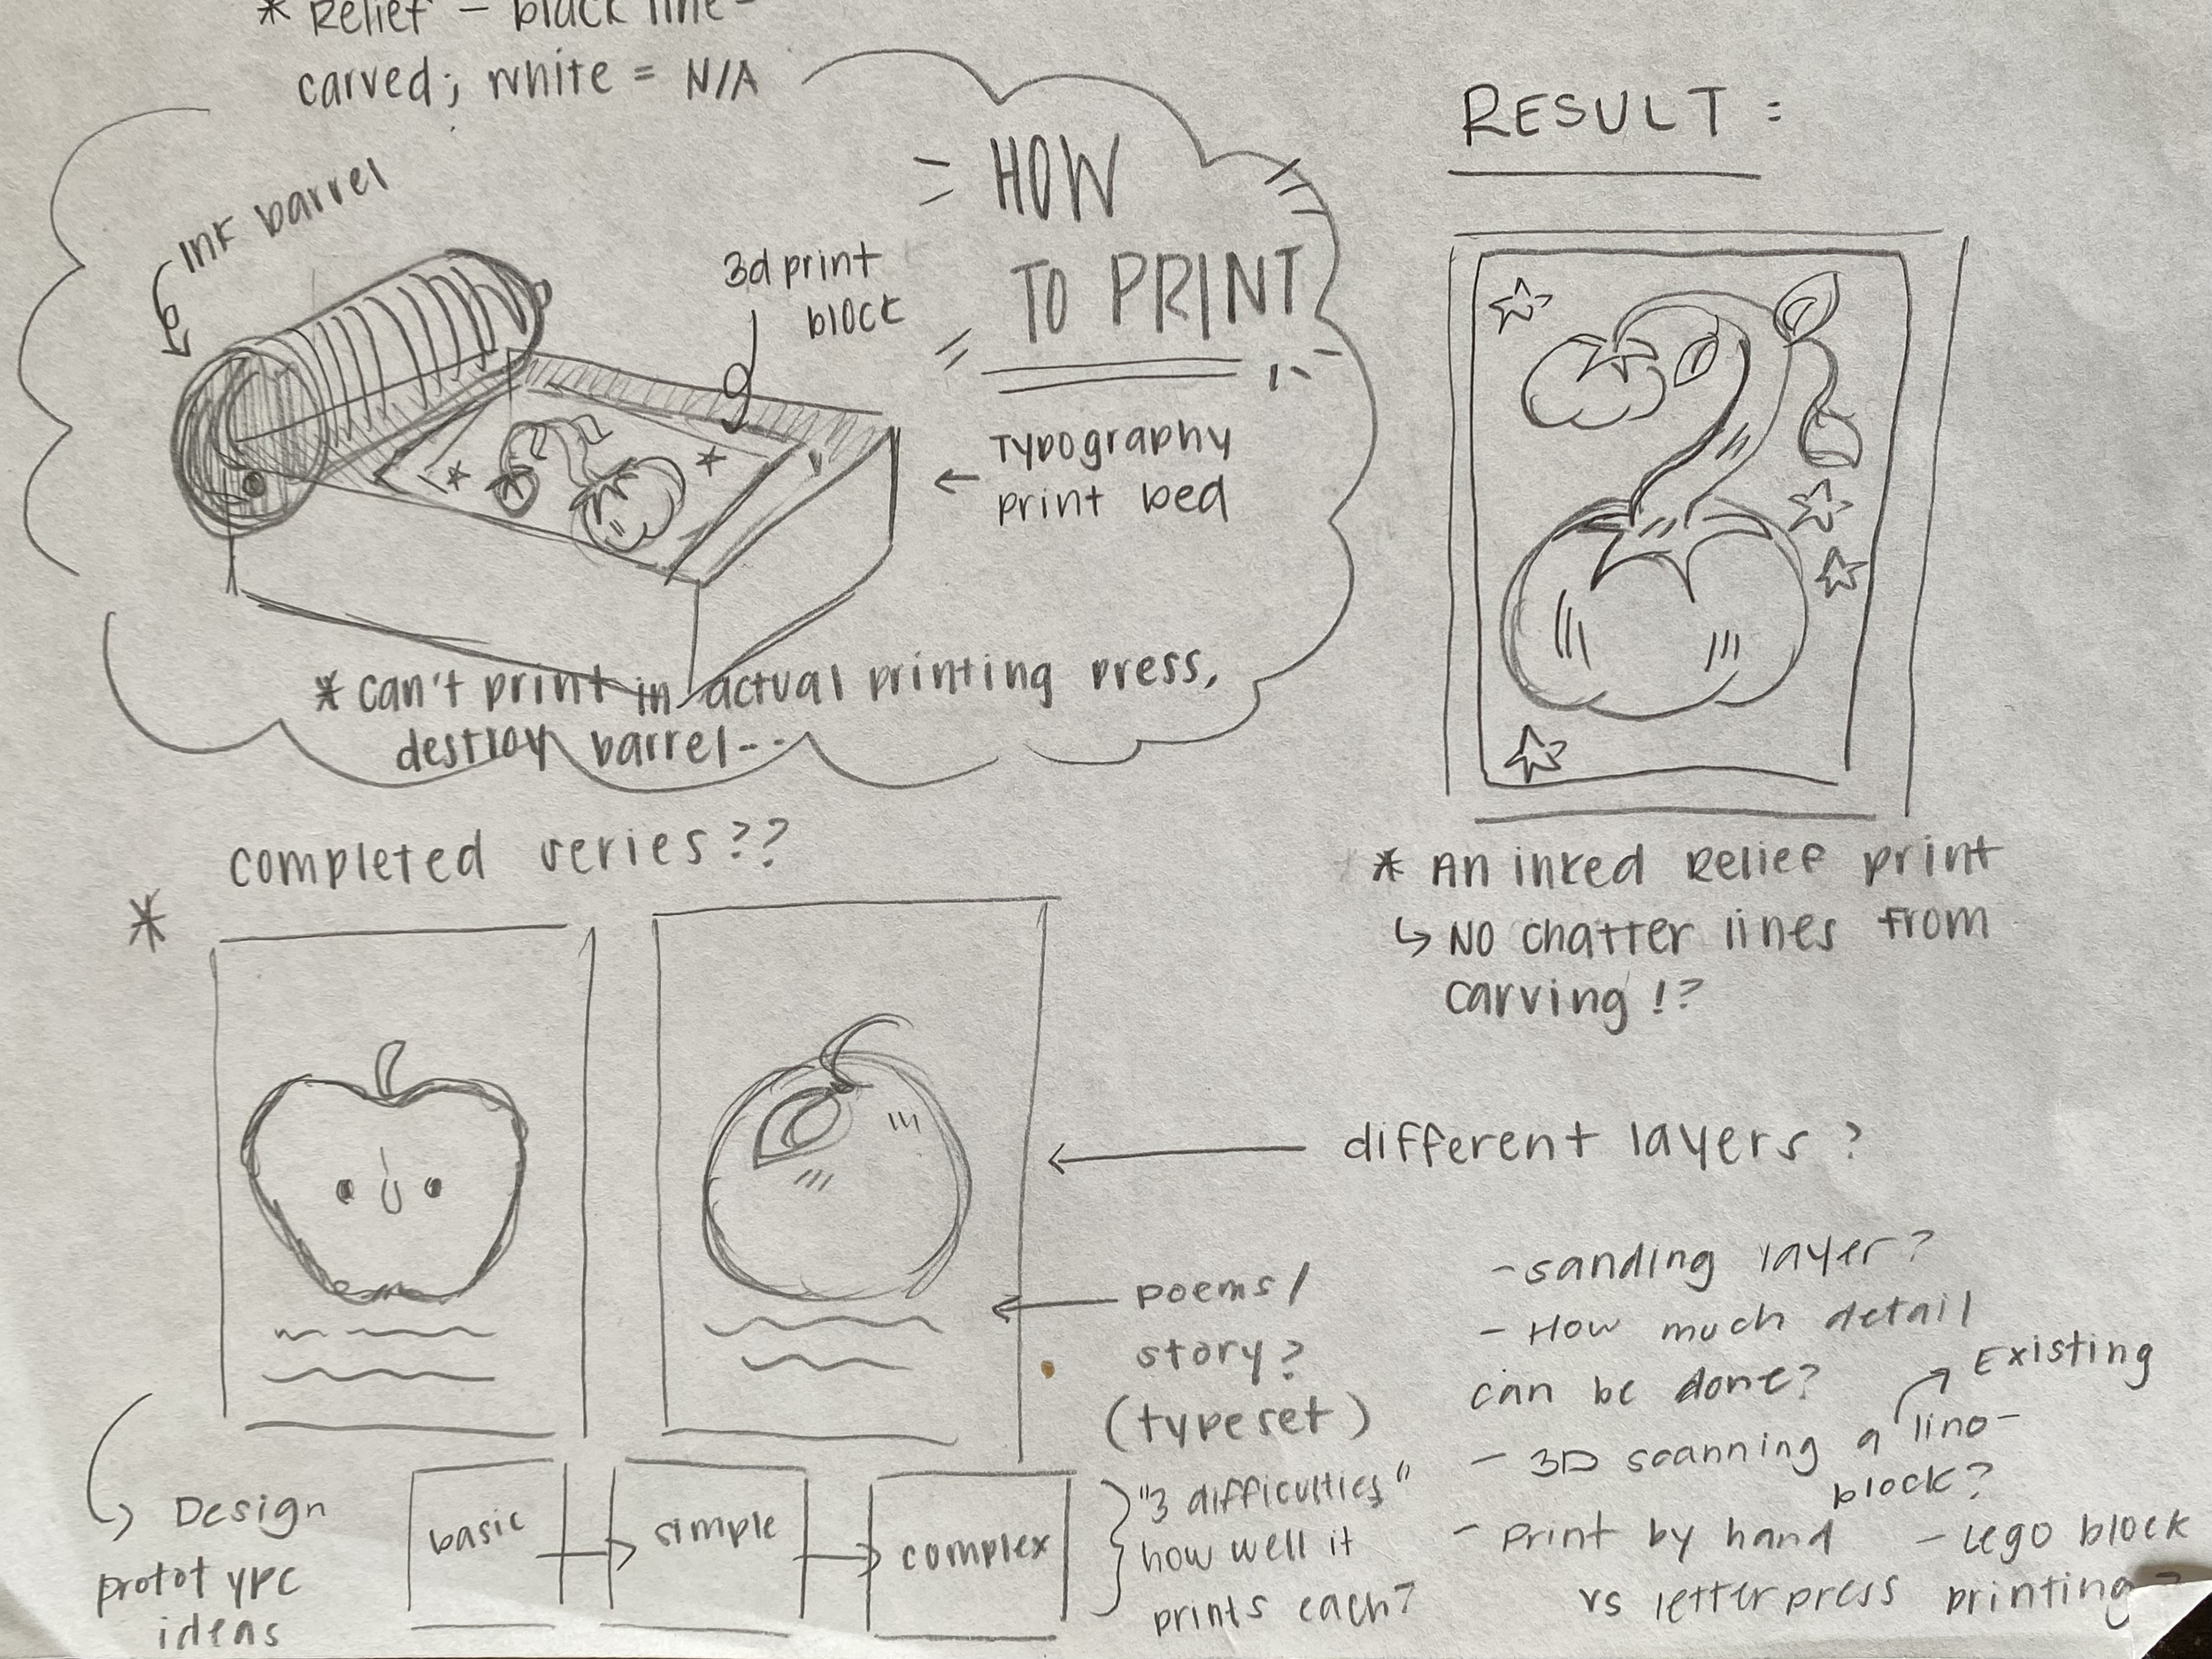 * Relief - black line-
carved; white = N/A
Ink barrel
3d print
block
HOW
TO PRINT
Typography
print bed
* can't print in actual printing press,
destroy barrel--
RESULT:
* An inked Relief print
↳ No chatter lines from
carving!?
completed series??
*
different layers?
poems/
story?
(typeset)
Design
prototype
ideas
basic
simple
complex
"3 difficulties"
how well it
prints each?
- sanding layer?
- How much detail
can be done?
Existing
- 3D scanning a lino-
block?
- Print by hand
vs letterpress
- Lego block
printing?